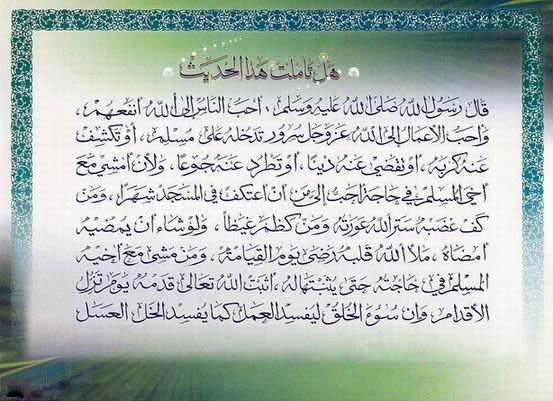 هل تأملت هذا الحديث
قال رسول الله صلى الله عليه وسلم : أحب الناس إلى الله أنفعهم ،
وأحب الأعمال إلى الله عز وجل سرور تدخله على مسلم ، أو تكشف
عنه كربة ، أو تقضي عنه ديناً ، أو تطرد عنه جوعاً ، ولأن أمشي مع
أخي المسلم في حاجة أحب إلي من أن أعتكف في المسجد شهراً ، ومن
كف غضبه ستر الله عورته ومن كظم غيظاً ، ولو شاء أن يمضيه
أمضاه ، ملأ الله قلبه رضى يوم القيامة ، ومن مشى مع أخيه
المسلم في حاجته حتى يثبتها له ، أثبت الله تعالى قدمه يوم تزل
الأقدام ، وإن سوء الخلق ليفسد العمل كما يفسد الخل العسل